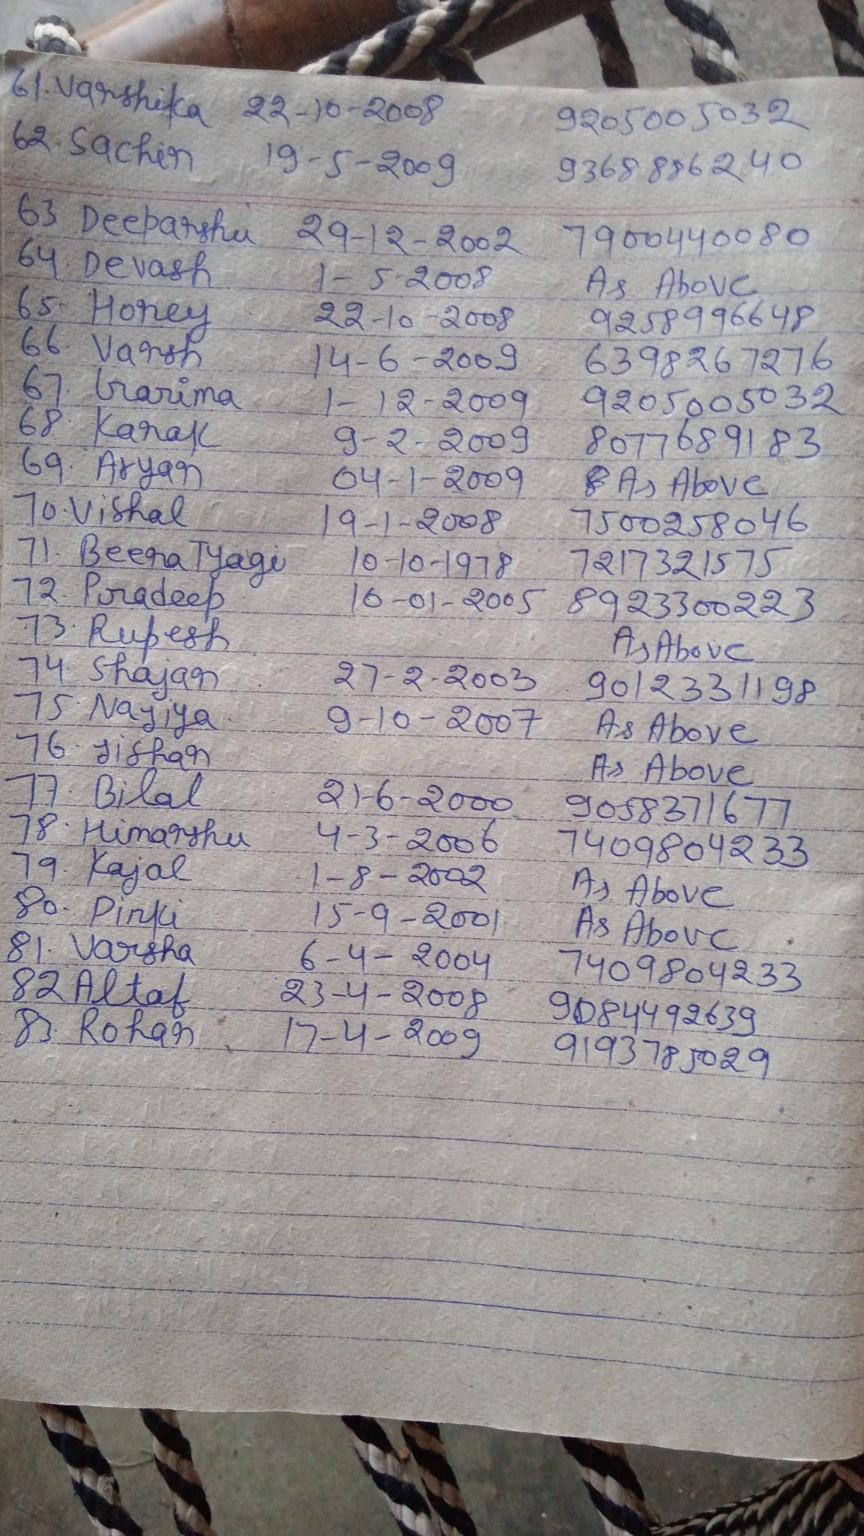 61. Vanshika 22-10-2008 9205005032
62. Sachin 19-5-2009 9368886240
63 Deepanshu 29-12-2002 7900440080
64 Devash 1-5-2008 As Above
65- Honey 22-10-2008 9258996648
66. Vansh 14-6-2009 6398267276
67. Garima 1-12-2009 9205005032
68. Kanak 9-2-2009 8077689183
69. Aryan 04-1-2009 As Above
70. Vishal 19-1-2008 7500258046
71. Beena Tyagi 10-10-1978 7217321575
72. Pradeep 16-01-2005 8923300223
73. Rupesh As Above
74 Shajan 27-2-2003 9012331198
75 Naziya 9-10-2007 As Above
76. Jishan As Above
77. Bilal 21-6-2000 9058371677
78. Himanshu 4-3-2006 7409804233
79. Kajal 1-8-2002 As Above
80. Pinki 15-9-2001 As Above
81. Varsha 6-4-2004 7409804233
82 Altaf 23-4-2008 9084492639
83. Rohan 17-4-2009 9193785029